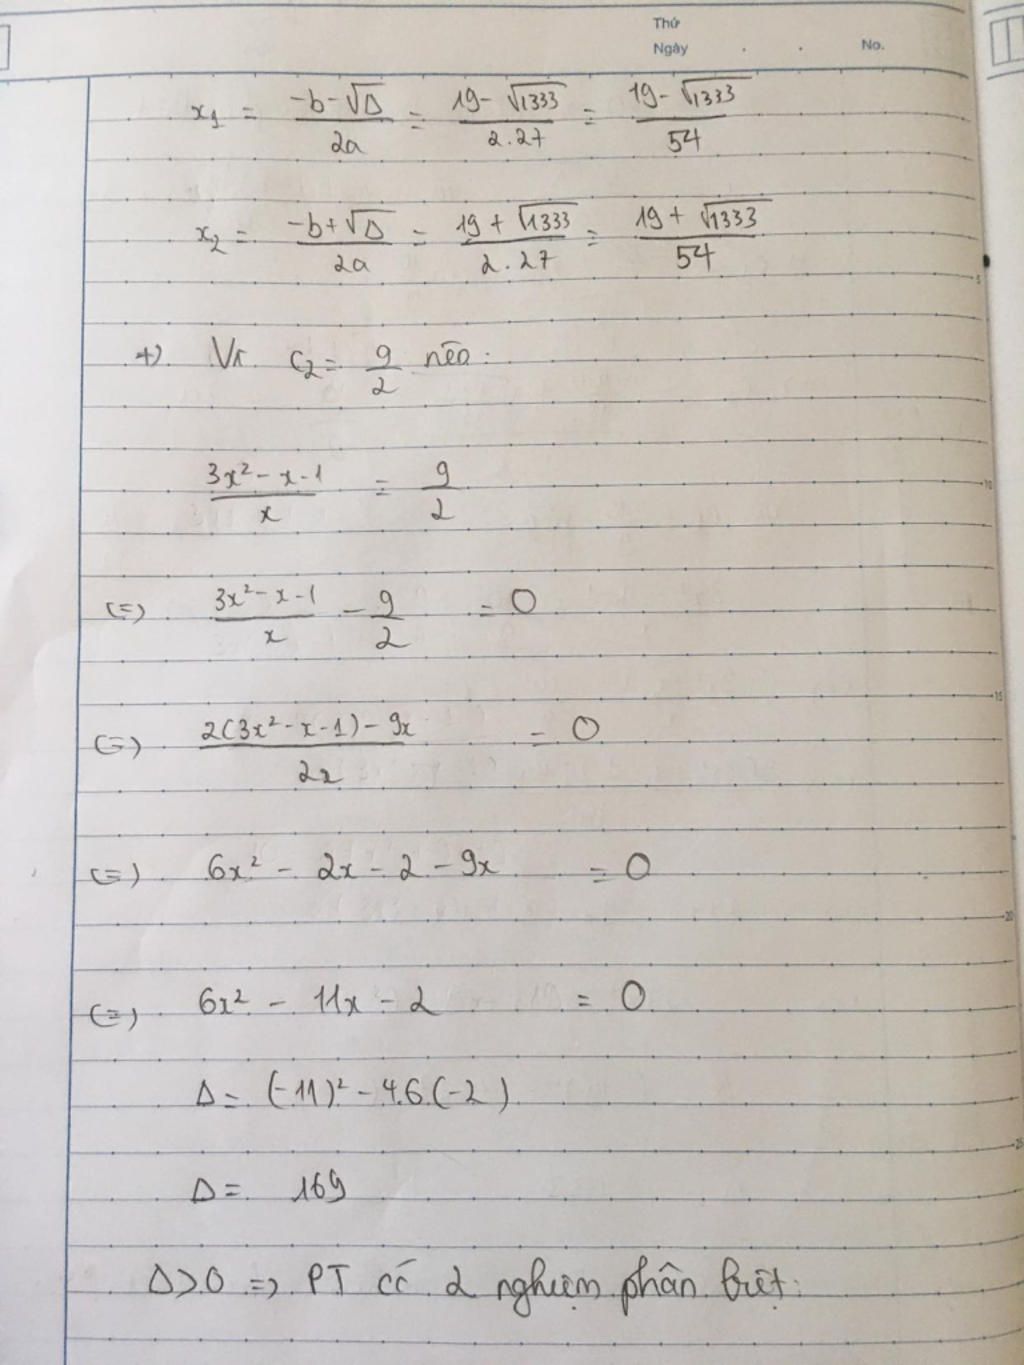 Thứ
Ngày . . No.
x₁ = (-b-√Δ)/2a = (19-√1333)/2.27 = (19-√1333)/54
x₂ = (-b+√Δ)/2a = (19+√1333)/2.27 = (19+√1333)/54
5
+). Vs. C₂ = 9/2 nēo:
(3x²-x-1)/x = 9/2
10
(=) (3x²-x-1)/x - 9/2 = 0
15
(=) (2(3x²-x-1)-9x)/2x = 0
(=) 6x² - 2x - 2 - 9x = 0
20
(=) 6x² - 11x - 2 = 0
Δ = (-11)² - 4.6.(-2)
25
Δ = 169
Δ>0 => PT có 2 nghiệm phân biệt.